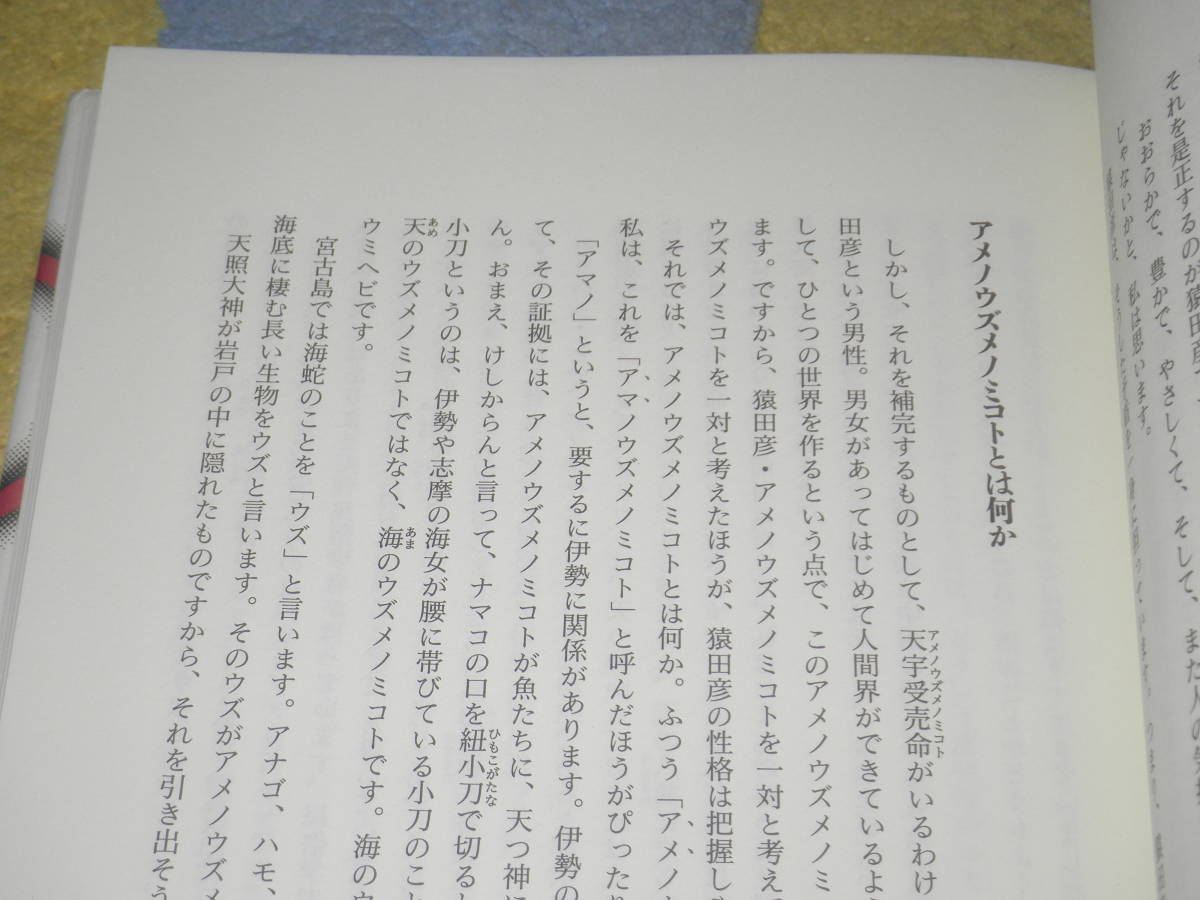 それを是正するのが猿田彦で
おおらかで、豊かで、やさしくて、そして、また人の
じゃないかと、私は思います。
アメノウズメノミコトとは何か
しかし、それを補完するものとして、天宇受売命がいるわけ
アメノウズメノミコト
田彦という男性。男女があってはじめて人間界ができているよ
して、ひとつの世界を作るという点で、このアメノウズメノミ
ます。ですから、猿田彦・アメノウズメノミコトを一対と考え
ウズメノミコトを一対と考えたほうが、猿田彦の性格は把握し
それでは、アメノウズメノミコトとは何か。ふつう「アメノ
私は、これを「アマノウズメノミコト」と呼んだほうがぴった
「アマノ」というと、要するに伊勢に関係があります。伊勢の
て、その証拠には、アメノウズメノミコトが魚たちに、天つ神に
ん。おまえ、けしからんと言って、ナマコの口を紐小刀で切る
ひもこがたな
小刀というのは、伊勢や志摩の海女が腰に帯びている小刀のこ
天のウズメノミコトではなく、海のウズメノミコトです。海の
あめ
あま
ウミヘビです。
宮古島では海蛇のことを「ウズ」と言います。アナゴ、ハモ、
海底に棲む長い生物をウズと言います。そのウズがアメノウズメ
天照大神が岩戸の中に隠れたものですから、それを引き出そう